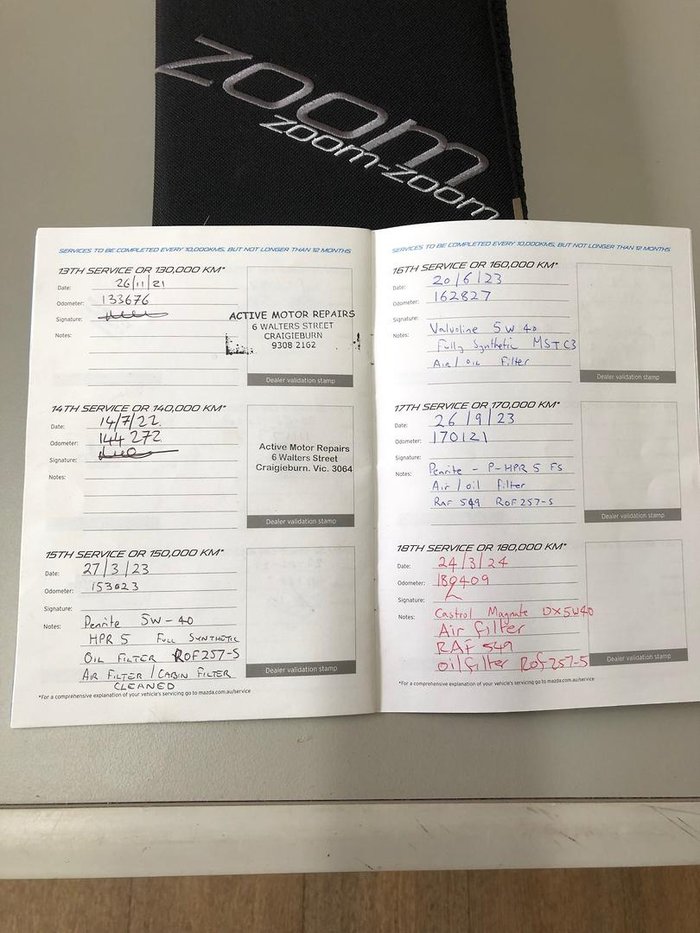 ZOOM
ZOOM-ZOOM
SERVICES TO BE COMPLETED EVERY 10,000KMS, BUT NOT LONGER THAN 12 MONTHS
13TH SERVICE OR 130,000 KM*
Date: 26/11/21
Odometer: 133676
Signature:
Notes:
ACTIVE MOTOR REPAIRS
6 WALTERS STREET
CRAIGIEBURN
9308 2162
Dealer validation stamp
14TH SERVICE OR 140,000 KM*
Date: 14/7/22.
Odometer: 144 272
Signature:
Notes:
Active Motor Repairs
6 Walters Street
Craigieburn. Vic. 3064
Dealer validation stamp
15TH SERVICE OR 150,000 KM*
Date: 27/3/23
Odometer: 153023
Signature:
Notes: Penrite 5W-40
HPR 5 FULL SYNTHETIC
OIL FILTER ROF257-S
AIR FILTER / CABIN FILTER
CLEANED
Dealer validation stamp
*For a comprehensive explanation of your vehicle's servicing go to mazda.com.au/service
SERVICES TO BE COMPLETED EVERY 10,000KMS, BUT NOT LONGER THAN 12 MONTHS
16TH SERVICE OR 160,000 KM*
Date: 20/6/23
Odometer: 162827
Signature:
Notes: Valvoline 5W40
Fully Synthetic MST C3
Air/oil Filter
Dealer validation stamp
17TH SERVICE OR 170,000 KM*
Date: 26/9/23
Odometer: 170121
Signature:
Notes: Penrite - P-HPR 5 FS
Air / oil Filter
RAF 549 ROF257-S
Dealer validation stamp
18TH SERVICE OR 180,000 KM*
Date: 24/3/24
Odometer: 180409
Signature:
Notes: Castrol Magnate DX5W40
Air filter
RAF 549
oil filter Rof257-S
Dealer validation stamp
*For a comprehensive explanation of your vehicle's servicing go to mazda.com.au/service